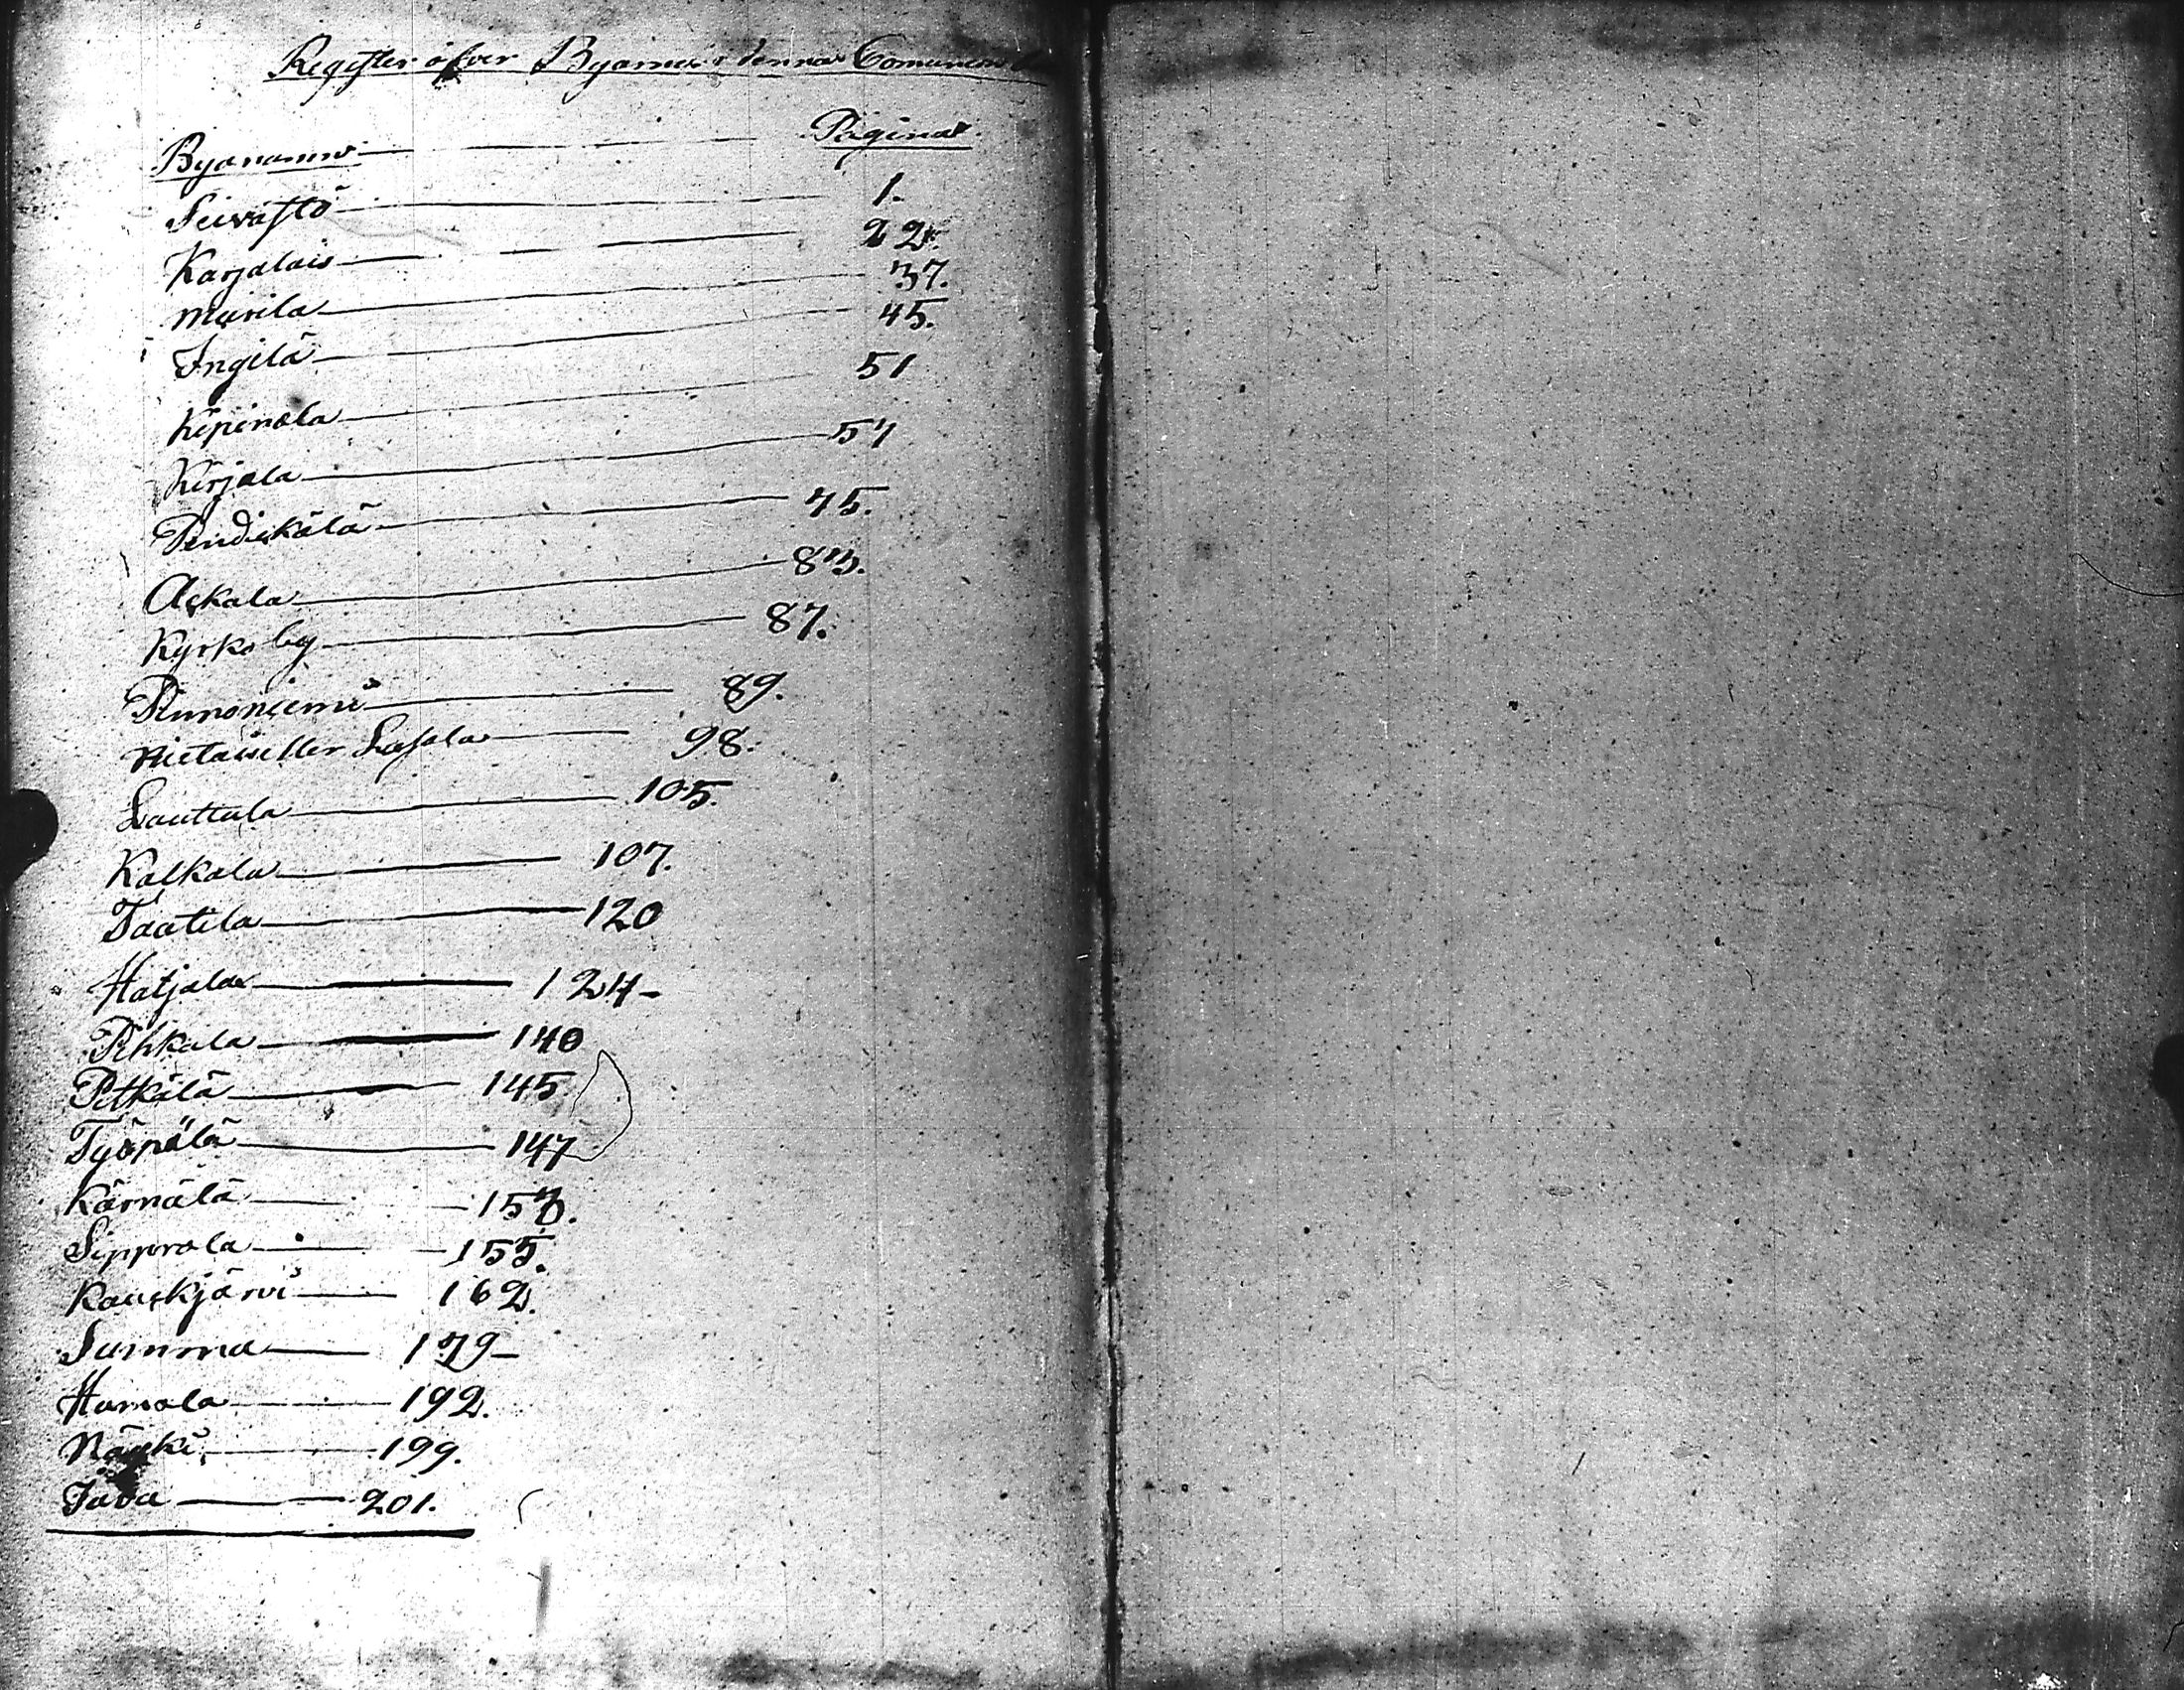 Register öfver Byarne i denna Comunion
Byanamn — Pagina
Seivästö — 1.
Karjalais — 22.
Murila — 37.
Ingilä — 45.
Kipinola — 51
Kirjala — 57
Pendikälä — 75.
Ackala — 83.
Kyrkoby — 87.
Runoniemi — 89.
Mietais eller Lassla — 98.
Lauttala — 105.
Kalkala — 107.
Taatila — 120
Hatjala — 124 —
Pihkala — 140
Pitkälä — 145
Työpälä — 147
Kärnälä — 153.
Sipprola — 155.
Kauckjärvi — 162.
Summa — 179 —
Humala — 192.
Näyki — 199.
Java — 201.